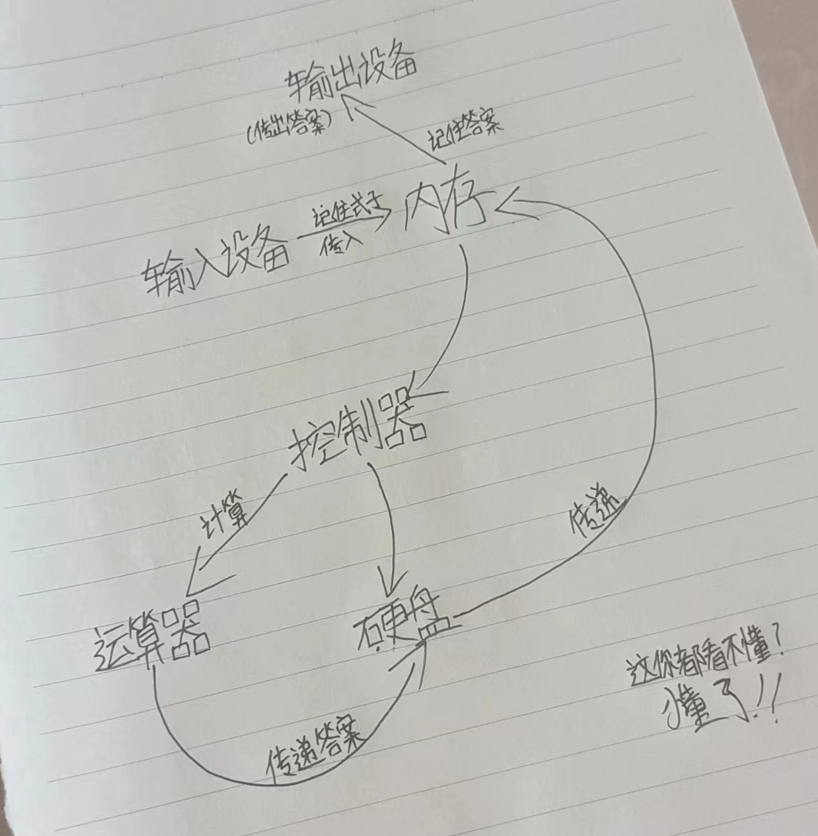 输出设备
(传出答案)
记住答案
内存
记住式子
传入
输入设备
控制器
计算
传递
运算器
硬盘
传递答案
这你都看不懂?
懂了!!